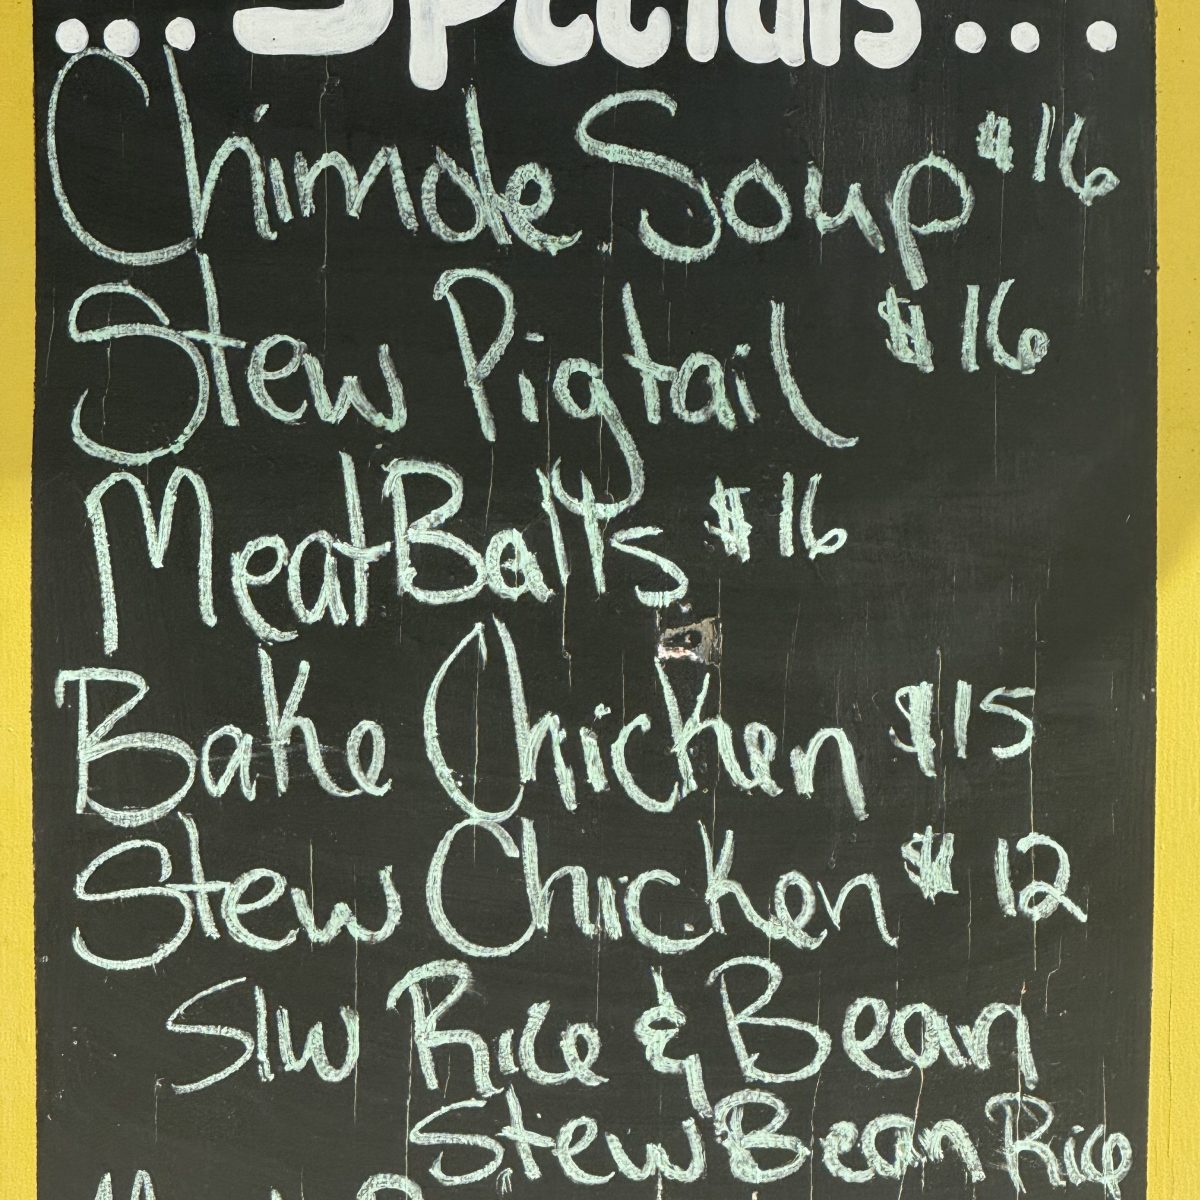 ... Specials ...
Chimole Soup $16
Stew Pigtail $16
MeatBalls $16
Bake Chicken $15
Stew Chicken $12
S/w Rice & Bean
Stew Bean Rice